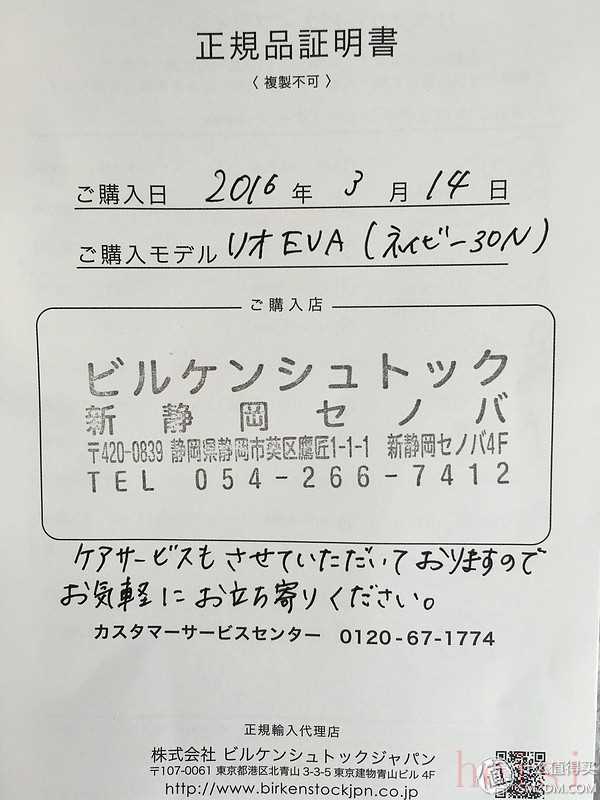 正規品証明書
〈 複製不可 〉
ご購入日 2016 年 3 月 14 日
ご購入モデル リオ EVA (ネイビー30N)
ご購入店
ビルケンシュトック
新静岡セノバ
〒420-0839 静岡県静岡市葵区鷹匠1-1-1 新静岡セノバ4F
TEL 054-266-7412
ケアサービスもさせていただいておりますので
お気軽にお立ち寄りください。
カスタマーサービスセンター 0120-67-1774
正規輸入代理店
株式会社 ビルケンシュトックジャパン
〒107-0061 東京都港区北青山 3-3-5 東京建物青山ビル 4F
http://www.birkenstockjpn.co.jp
值得买